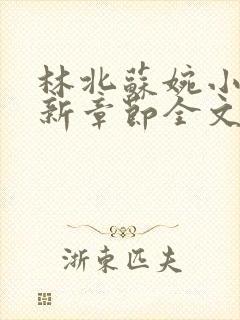 林北蘇婉小
新章節全文
浙東匹夫